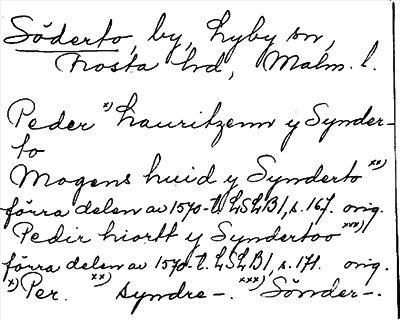 Söderto, by, Lyby sn,
Frosta hd, Malm. l.
Peder x) Lauritzenn y Synder-
to
Mogens huid y Synderto xx)
förra delen av 1570-t. LSLB1, s. 167. orig.
Pedir hiortt y Syndertoo xxx)
förra delen av 1570-t. LSLB1, s. 171. orig.
x) Per. xx) Syndre-. xxx) Sönder-.